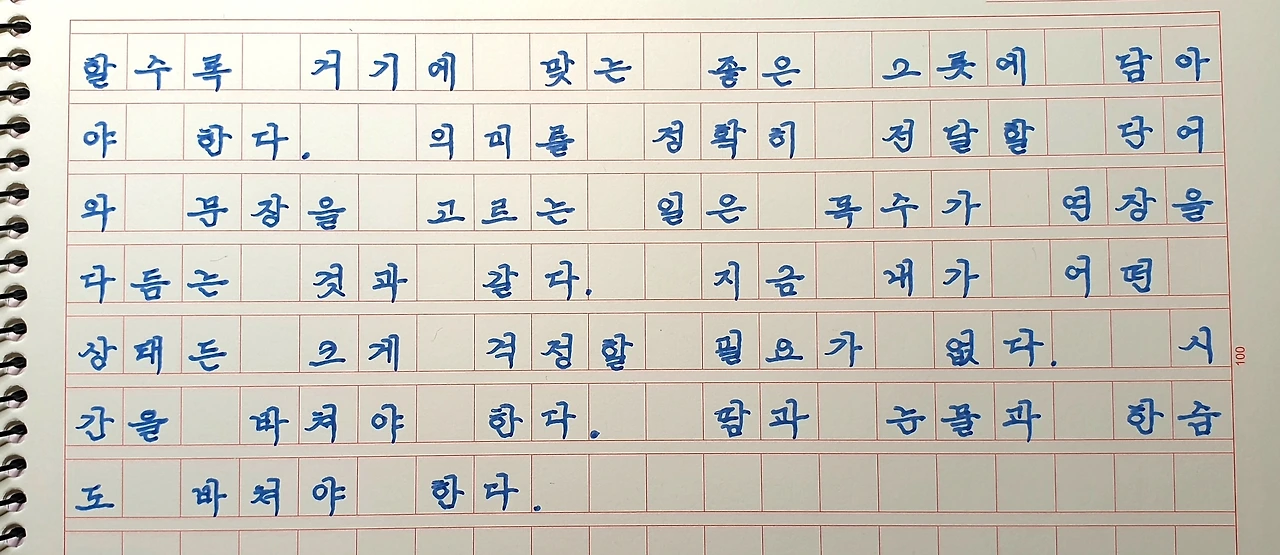 할수록 거기에 맞는 좋은 그릇에 담아
야 한다. 의미를 정확히 전달할 단어
와 문장을 고르는 일은 목수가 연장을
다듬는 것과 같다. 지금 내가 어떤
상태든 크게 걱정할 필요가 없다. 시
간을 바쳐야 한다. 땀과 눈물과 한숨
도 바쳐야 한다.
100